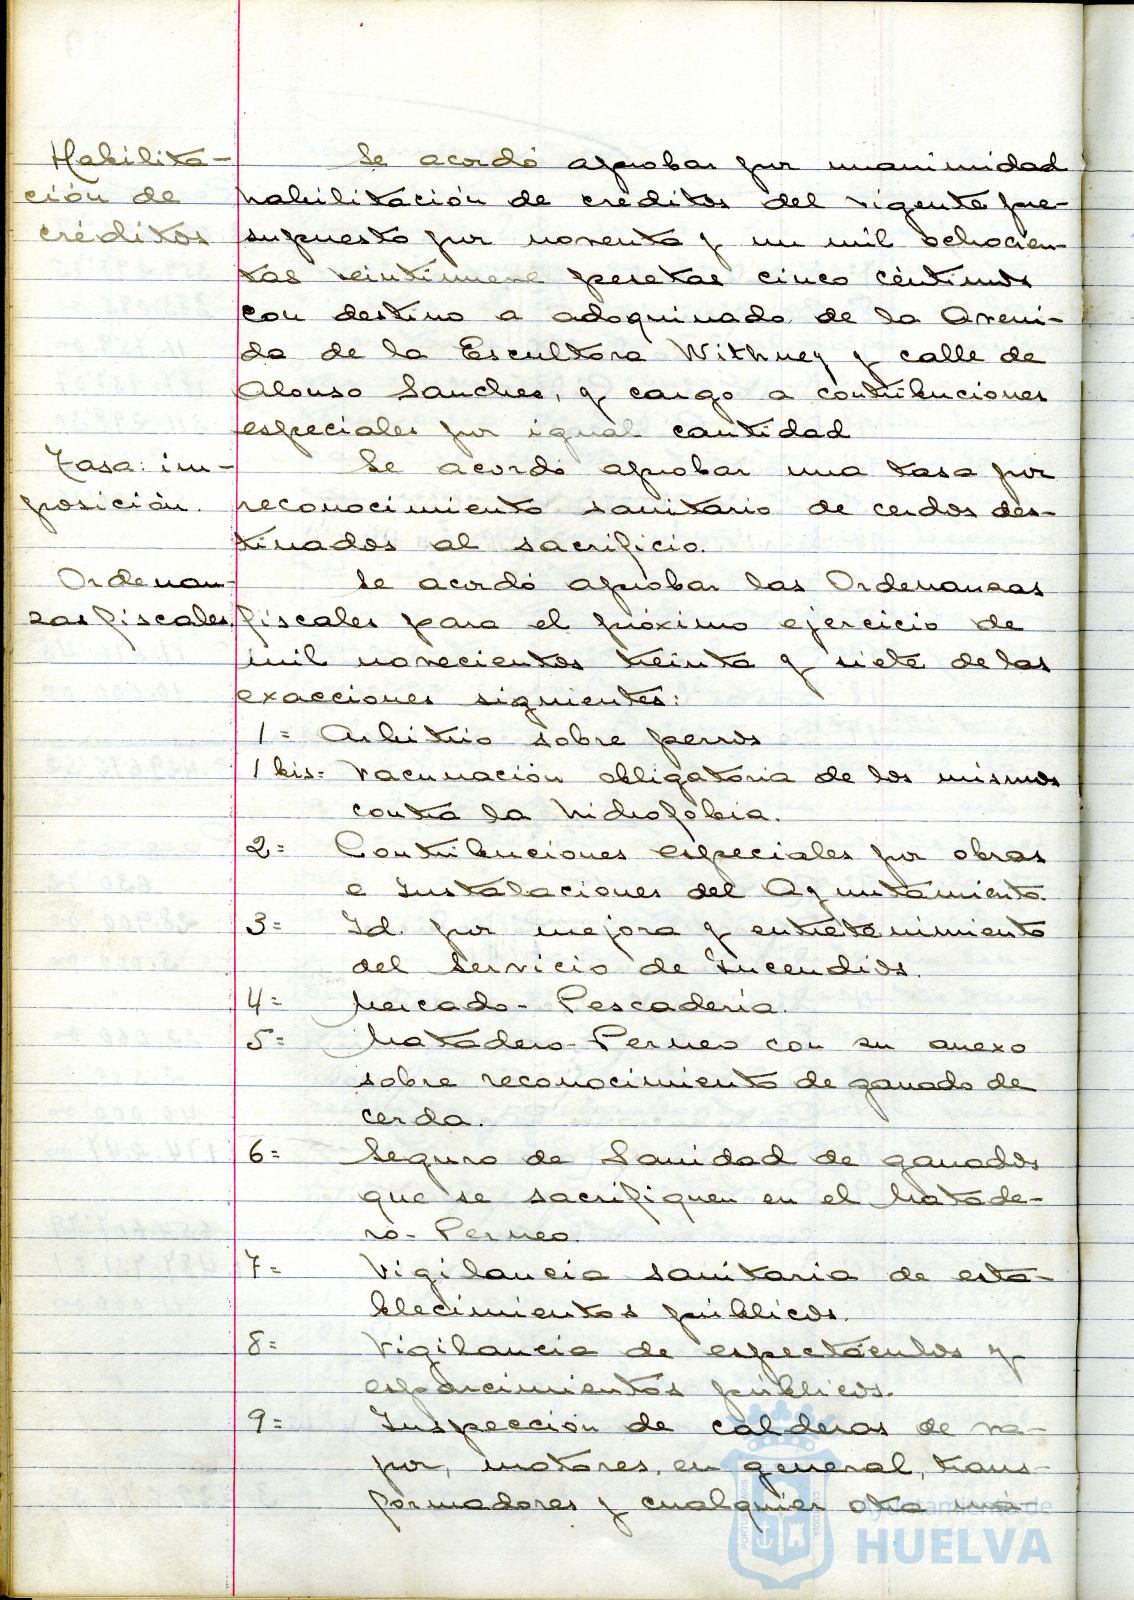 Habilita-
ción de
créditos
Se acordó aprobar por unanimidad
habilitación de créditos del vigente pre-
supuesto por noventa y un mil ochocien-
tas veintinueve pesetas cinco céntimos
con destino a adoquinado de la Aveni-
da de la Escultora Withney y calle de
Alonso Sanches, y cargo a contribuciones
especiales por igual cantidad
Tasa: im-
posición.
Se acordó aprobar una tasa por
reconocimiento sanitario de cerdos des-
tinados al sacrificio.
Ordenan-
zas fiscales.
Se acordó aprobar las Ordenanzas
fiscales para el próximo ejercicio de
mil novecientos treinta y siete de las
exacciones siguientes:
1= Arbitrio sobre perros
1 bis= Vacunación obligatoria de los mismos
contra la hidrofobia.
2= Contribuciones especiales por obras
e Instalaciones del Ayuntamiento.
3= Id. por mejora y entretenimiento
del Servicio de Incendios.
4= Mercado-Pescadería.
5= Matadero-Perneo con su anexo
sobre reconocimiento de ganado de
cerda.
6= Seguro de Sanidad de ganados
que se sacrifiquen en el Matade-
ro-Perneo.
7= Vigilancia sanitaria de esta-
blecimientos públicos.
8= Vigilancia de espectáculos y
esparcimientos públicos.
9= Inspección de calderas de va-
por, motores, en general, trans-
formadores y cualquier otra má-
Ayuntamiento de
HUELVA